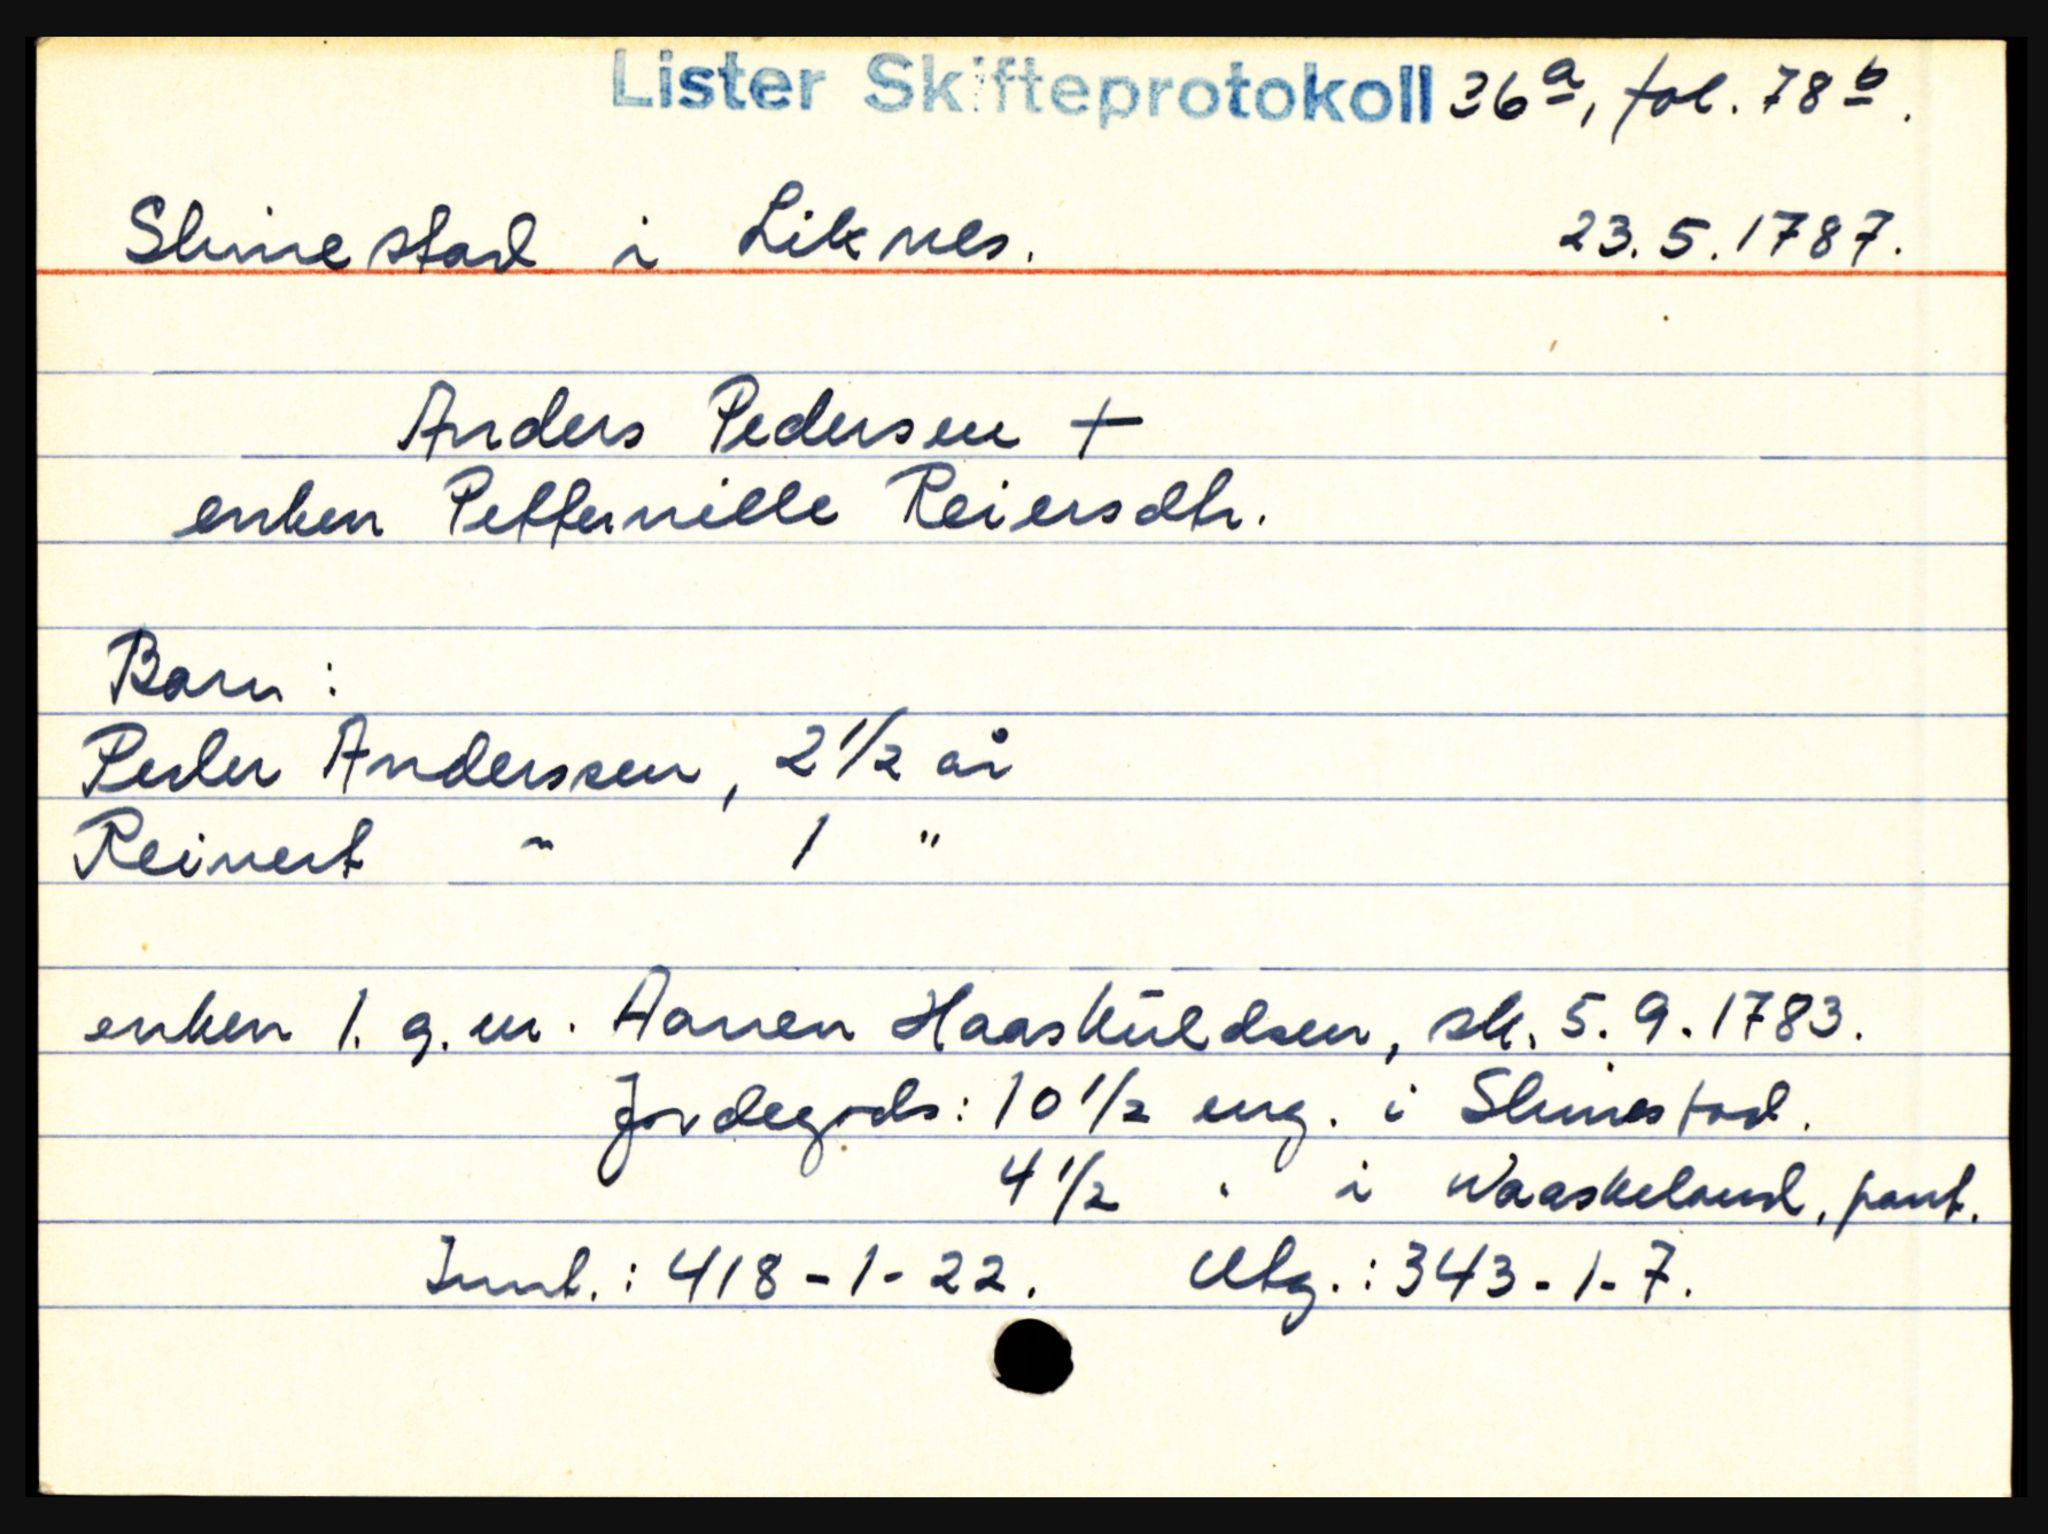 Lister Skifteprotokoll 36a, fol. 78b.
Slimestad i Liknes. 23.5.1787.
Anders Pedersen +
enken Petternille Reiersdtr.
Barn:
Peder Anderssen, 2 1/2 år
Reinert " 1 "
enken 1. g. m. Aanen Haaskuldsen, sk. 5.9.1783.
Jordegods: 10 1/2 eng. i Slimestad.
4 1/2 " i Waaskeland, pant.
Innt.: 418-1-22. Utg.: 343-1-7.